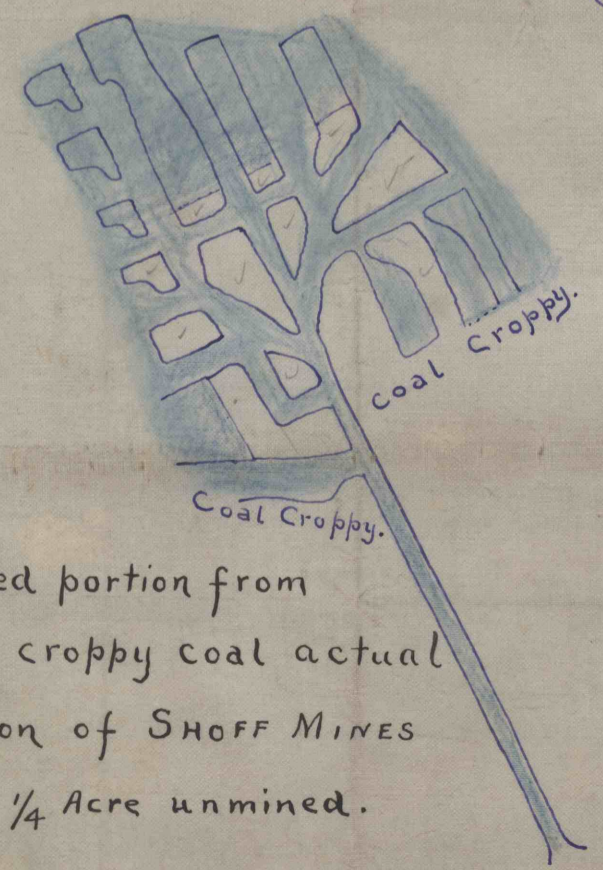 Coal Croppy.
Coal Croppy.
ed portion from
croppy coal actual
on of SHOFF MINES
1/4 Acre unmined.